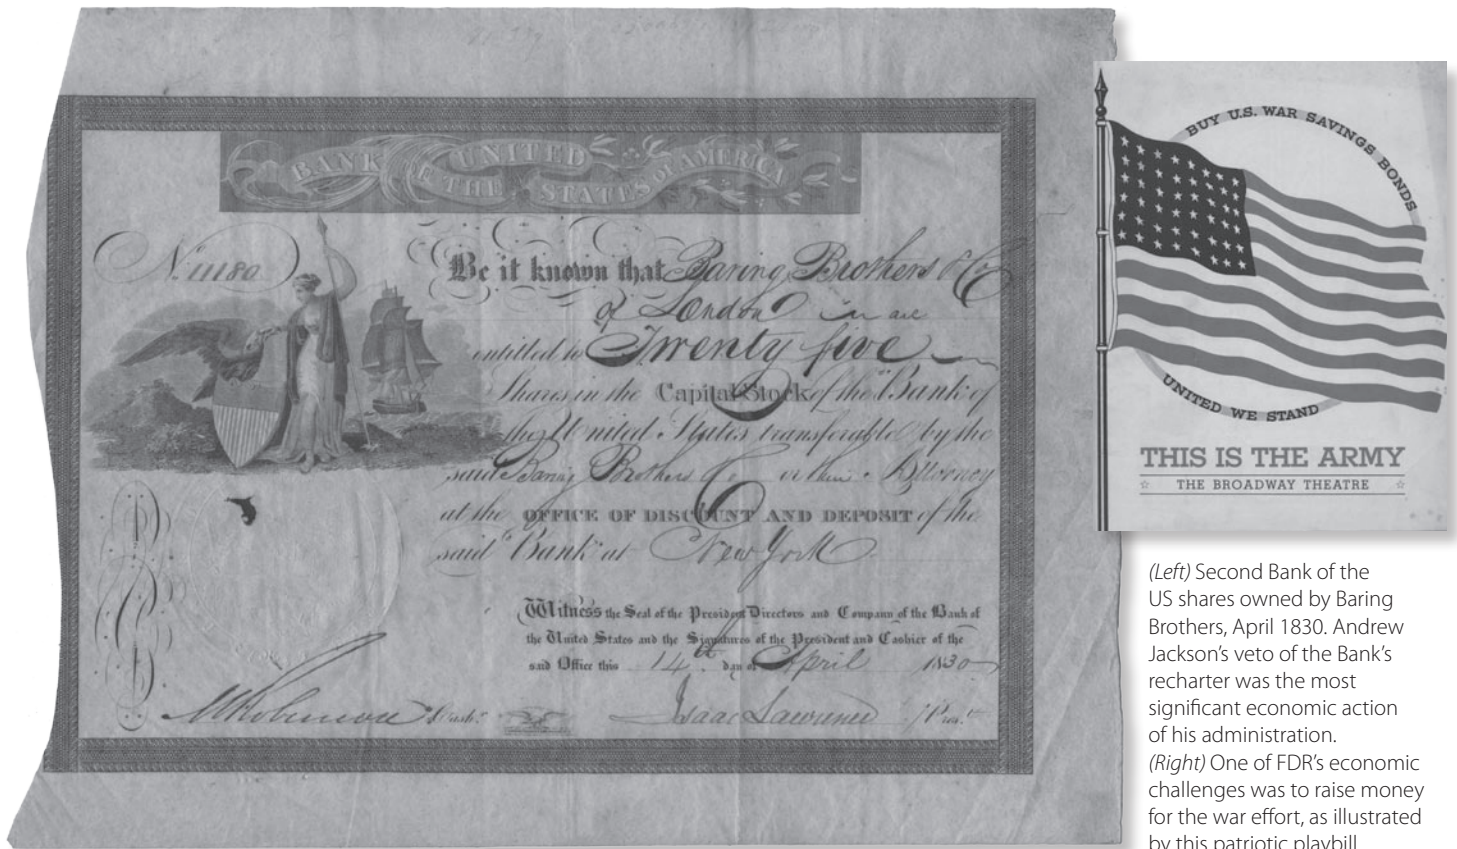 BANK OF THE UNITED STATES OF AMERICA
Be it known that Baring Brothers & Co
of London
entitled to Twenty five
Shares in the Capital Stock of the Bank of
the United States transferable by the
said Baring Brothers & Co or their Attorney
at the OFFICE OF DISCOUNT AND DEPOSIT of the
said Bank at New York
Witness the Seal of the President Directors and Company of the Bank of
the United States and the Signatures of the President and Cashier of the
said Office this 14th day of April 1830
Cash.r Isaac Lawrence Pres.t
BUY U.S. WAR SAVINGS BONDS
UNITED WE STAND
THIS IS THE ARMY
THE BROADWAY THEATRE
(Left) Second Bank of the
US shares owned by Baring
Brothers, April 1830. Andrew
Jackson’s veto of the Bank’s
recharter was the most
significant economic action
of his administration.
(Right) One of FDR’s economic
challenges was to raise money
for the war effort, as illustrated
by this patriotic playbill